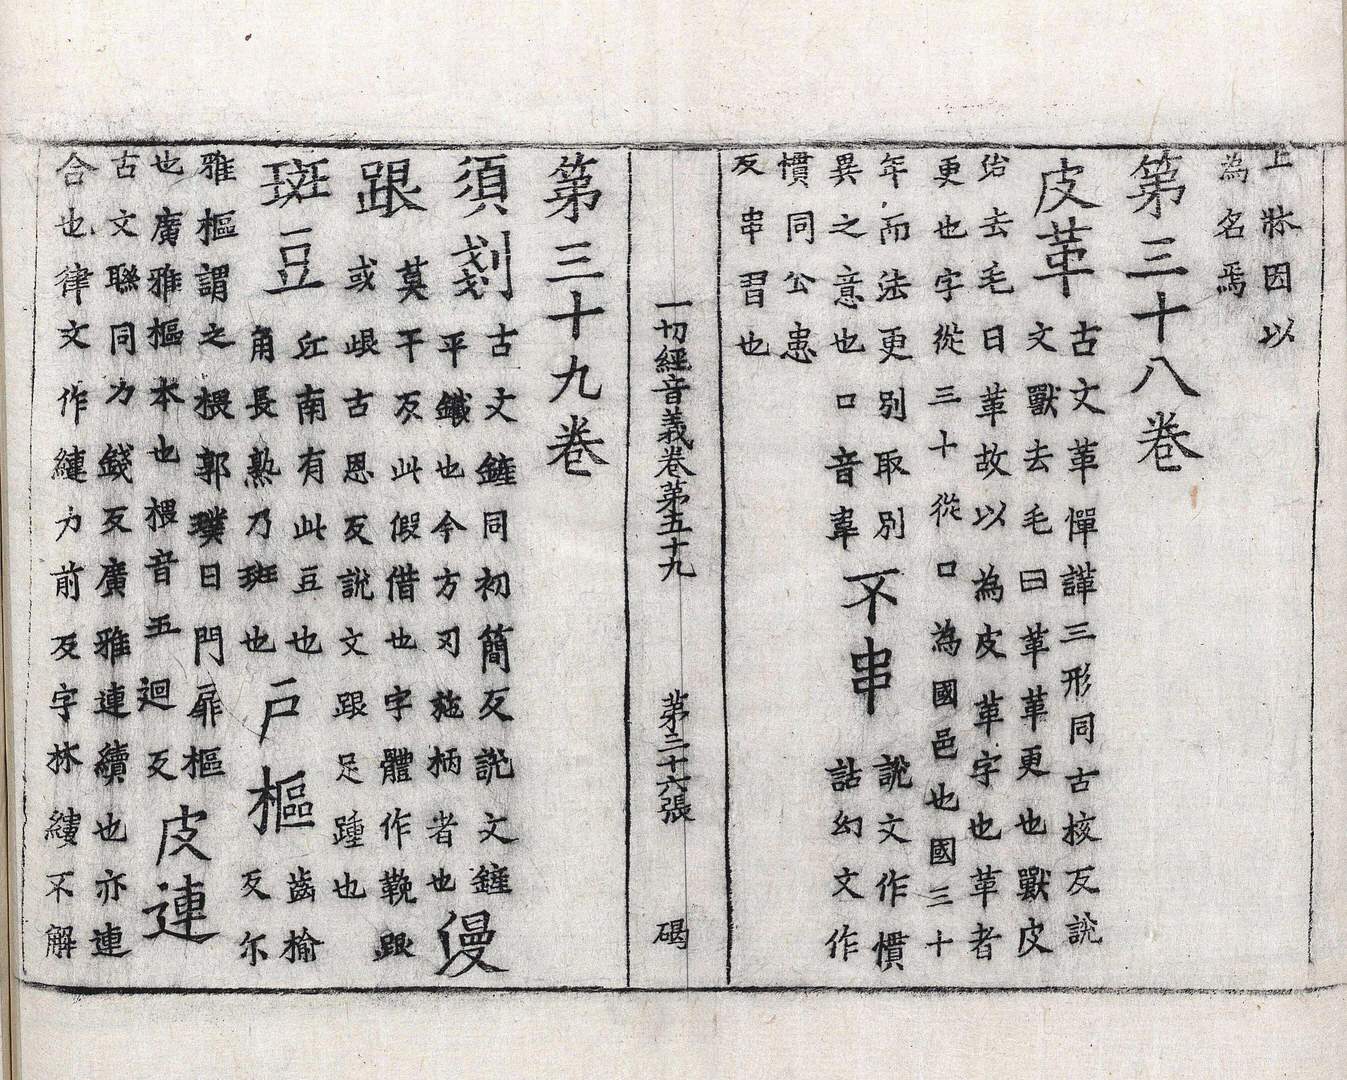 上牀因以
為名焉
第三十八卷
皮革 古文革愅諽三形同古核反說
文獸去毛曰革革更也獸皮
治去毛曰革故以為皮革字也革者
更也字從三十從口為國邑也國三十
年而法更別取別
異之意也口音韋
不串 說文作慣
詁幻文作
慣同公患
反串習也
一切經音義卷第五十九 第三十六張 碣
第三十九卷
須剗 古文鏟同初簡反說文鏟
平鐵也今方刃施柄者也
僈
莫干反此假借也字體作鞔
跟 或䟴古恩反說文跟足踵也
斑豆 江南有此豆也
角長熟乃斑也
戶樞 齒榆
反尔
雅樞謂之椳郭璞曰門扉樞
也廣雅樞本也椳音五迴反
皮連
古文聯同力錢反廣雅連續也亦連
合也律文作縺力前反字林縷不解